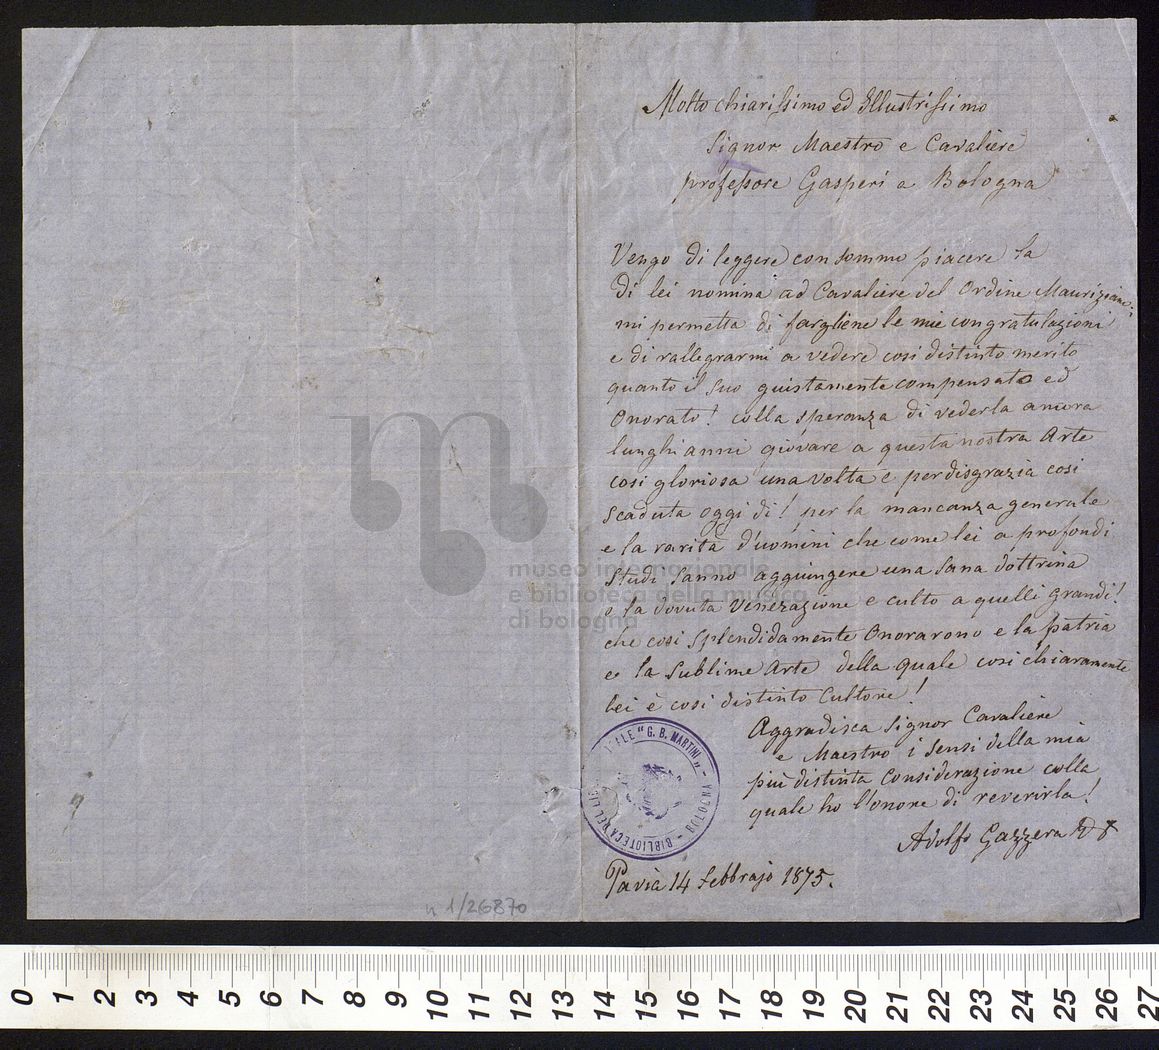 Molto chiarissimo ed Illustrissimo
Signor Maestro e Cavaliere
professore Gasperi a Bologna
Vengo di leggere con sommo piacere la
di lei nomina ad Cavaliere del Ordine Mauriziano:
mi permetta di fargliene le mie congratulazioni
e di rallegrarmi a vedere cosi distinto merito
quanto il suo guistamente compensato ed
Onorato! colla speranza di vederla ancora
lunghi anni giovare a questa nostra Arte
cosi gloriosa una volta e per disgrazia cosi
scaduta oggi di! per la mancanza generale
e la rarità d'uomini che come lei a profondi
studi sanno aggiungere una sana dottrina
e la dovuta Venerazione e culto a quelli grandi!
che cosi splendidamente Onorarono e la patria
e la sublime Arte della quale cosi chiaramente
lei è cosi distinto Cultore!
Aggradisca Signor Cavaliere
e Maestro i sensi della mia
più distinta Considerazione colla
quale ho l'onore di reverirla!
Adolfo Gazzera
Pavia 14 febbrajo 1875.
BIBLIOTECA DEL "G. B. MARTINI" - BOLOGNA
n 1/26870
museo internazionale
e biblioteca della musica
di bologna
0 1 2 3 4 5 6 7 8 9 10 11 12 13 14 15 16 17 18 19 20 21 22 23 24 25 26 27